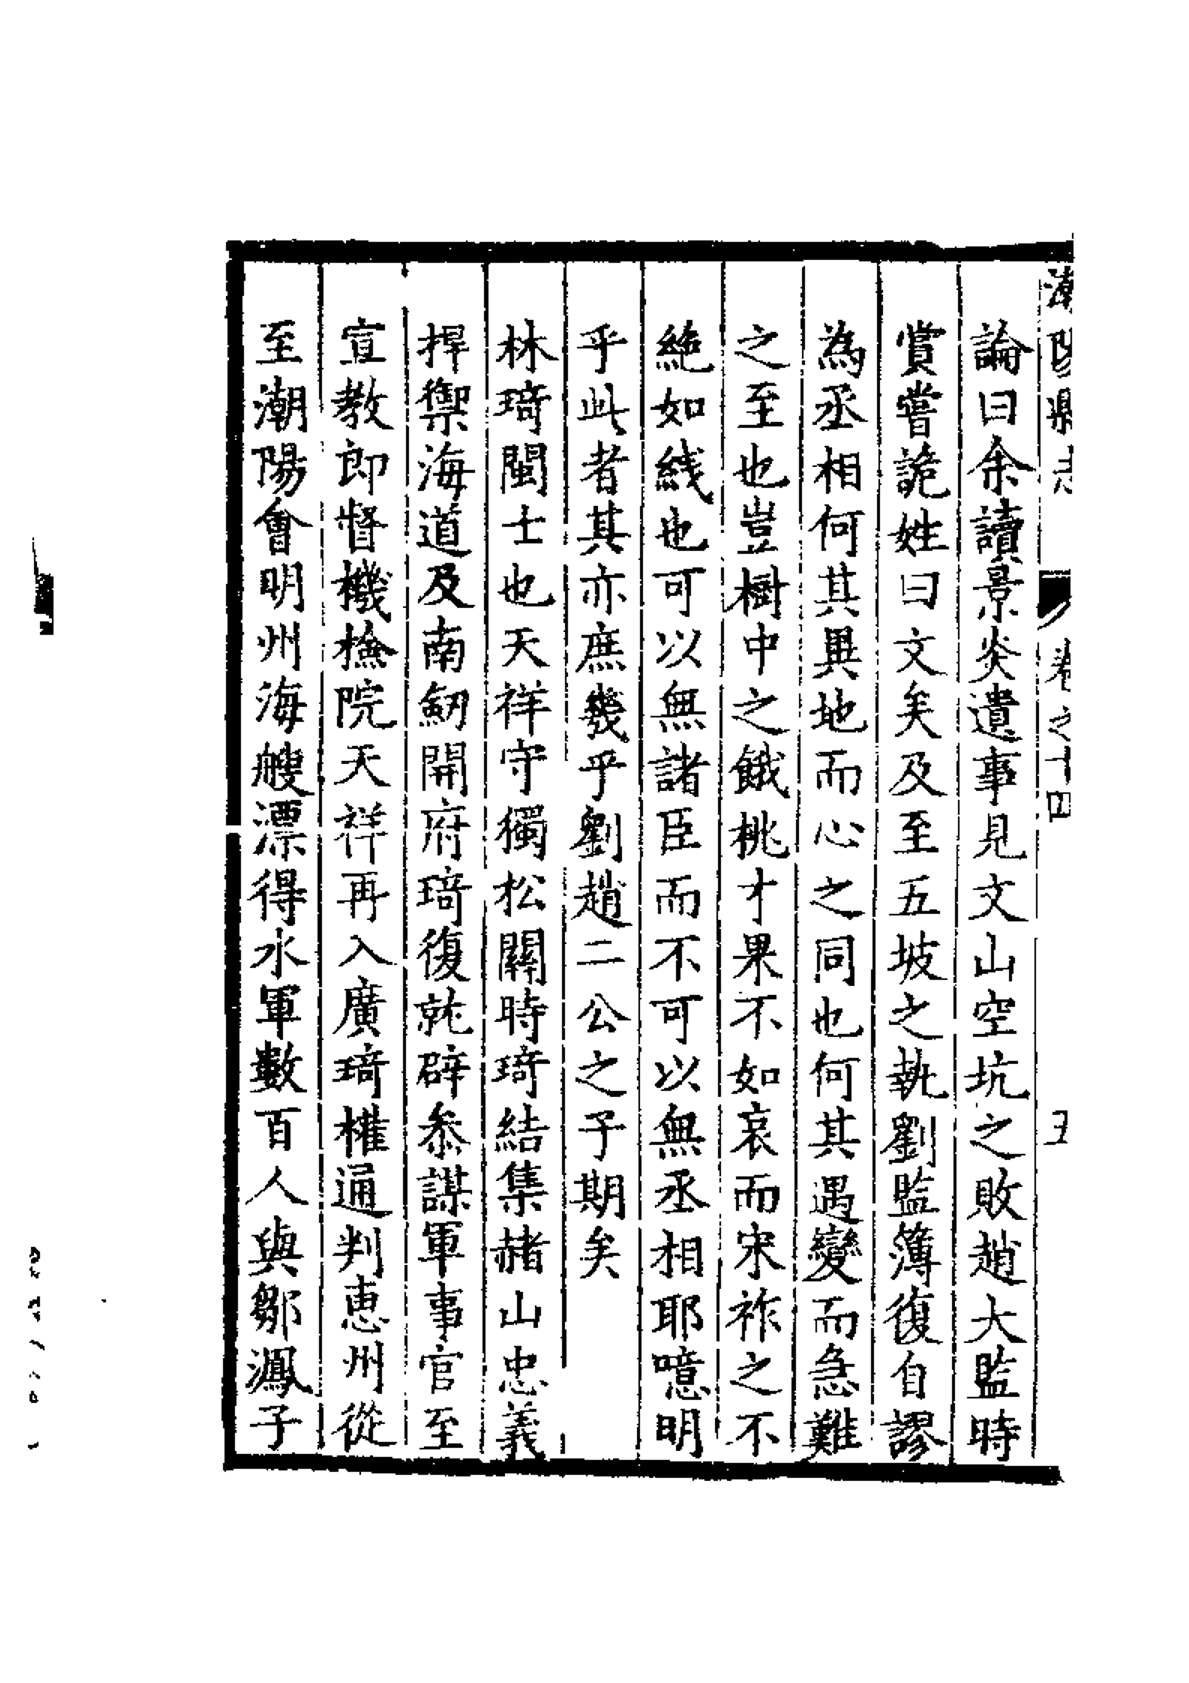 潮陽縣志 卷之十四 五
論曰余讀景炎遺事見文山空坑之敗趙大監時
賞嘗詭姓曰文矣及至五坡之執劉監簿復自謬
為丞相何其異地而心之同也何其遇變而急難
之至也豈樹中之餓桃才果不如哀而宋祚之不
絶如綫也可以無諸臣而不可以無丞相耶噫明
乎此者其亦庶幾乎劉趙二公之子期矣
林琦閩士也天祥守獨松關時琦結集赭山忠義
捍禦海道及南劒開府琦復就辟叅謀軍事官至
宣教郎督機檢院天祥再入廣琦權通判惠州從
至潮陽會明州海艘漂得水軍數百人與鄒㵯子